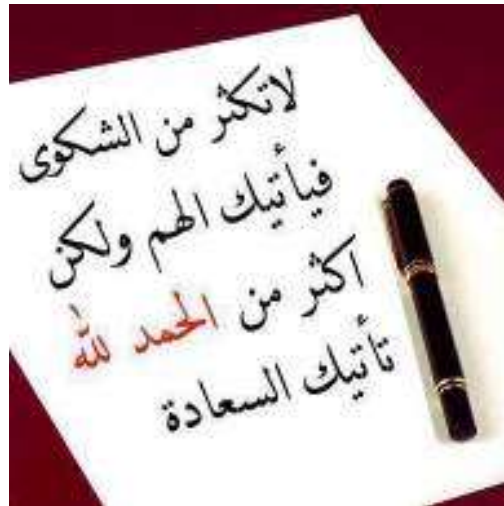 لاتكثر من الشكوى
فيأتيك الهم ولكن
اكثر من الحمد لله
تأتيك السعادة